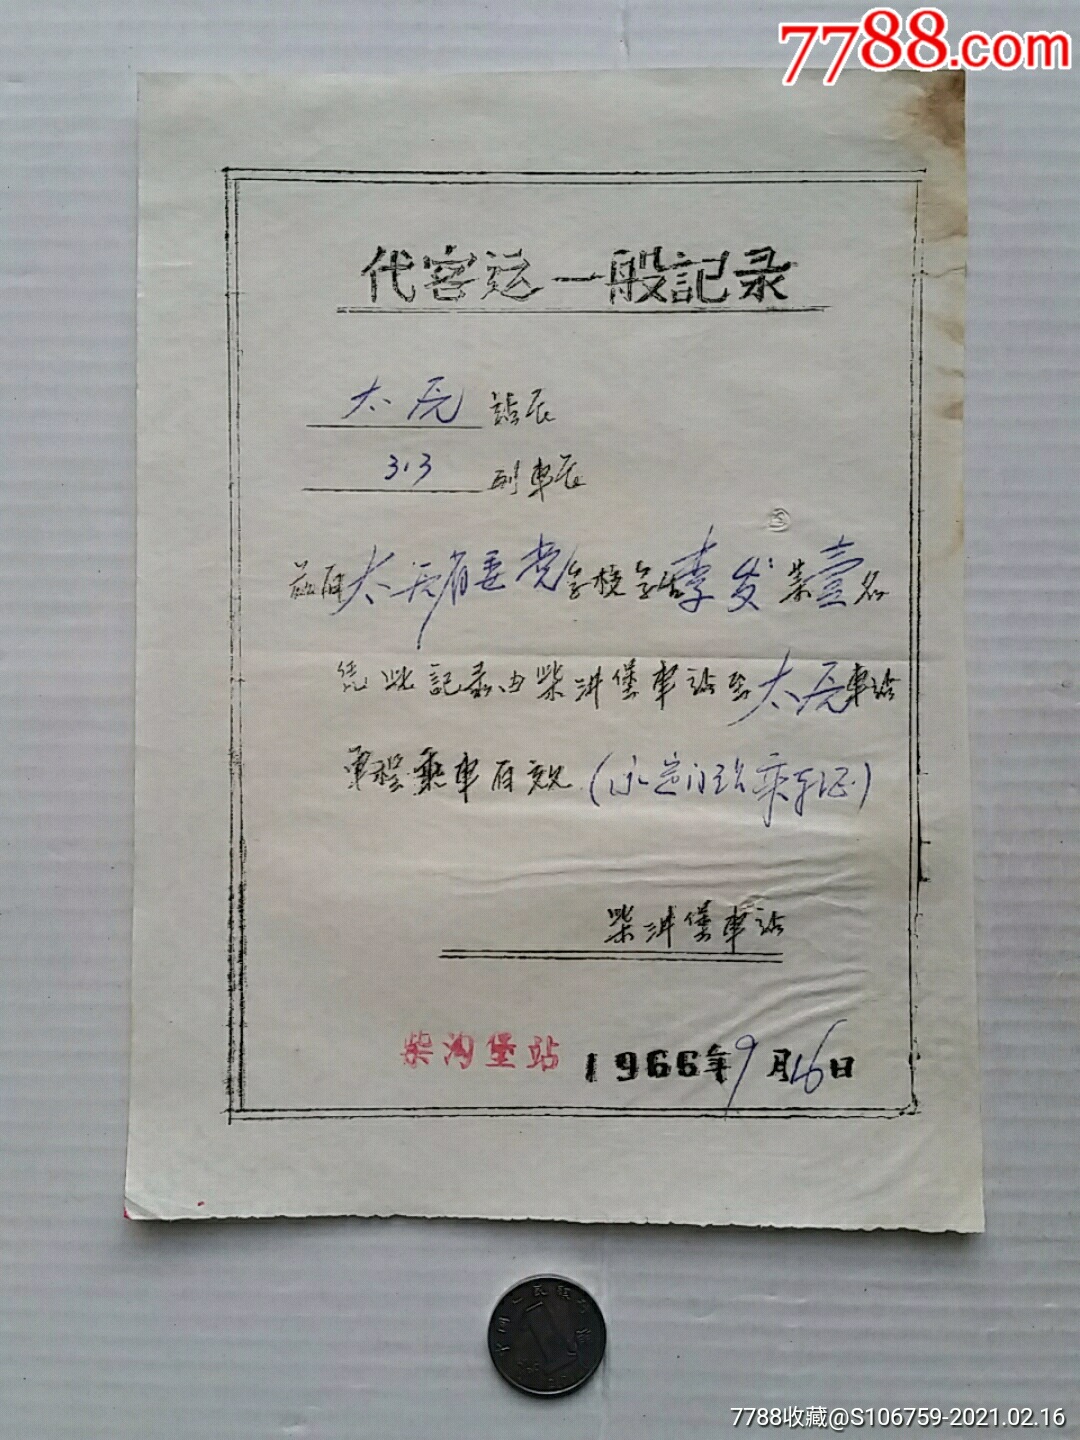 7788.com
代客运一般記录
太原 站长
313 列車长
兹有太原省委党学校学生李发荣壹名
凭此記录由柴沟堡車站至太原車站
單程乘車有效(永定门站乘车证)
柴沟堡車站
柴沟堡站 1966年9月16日
7788收藏@S106759-2021.02.16